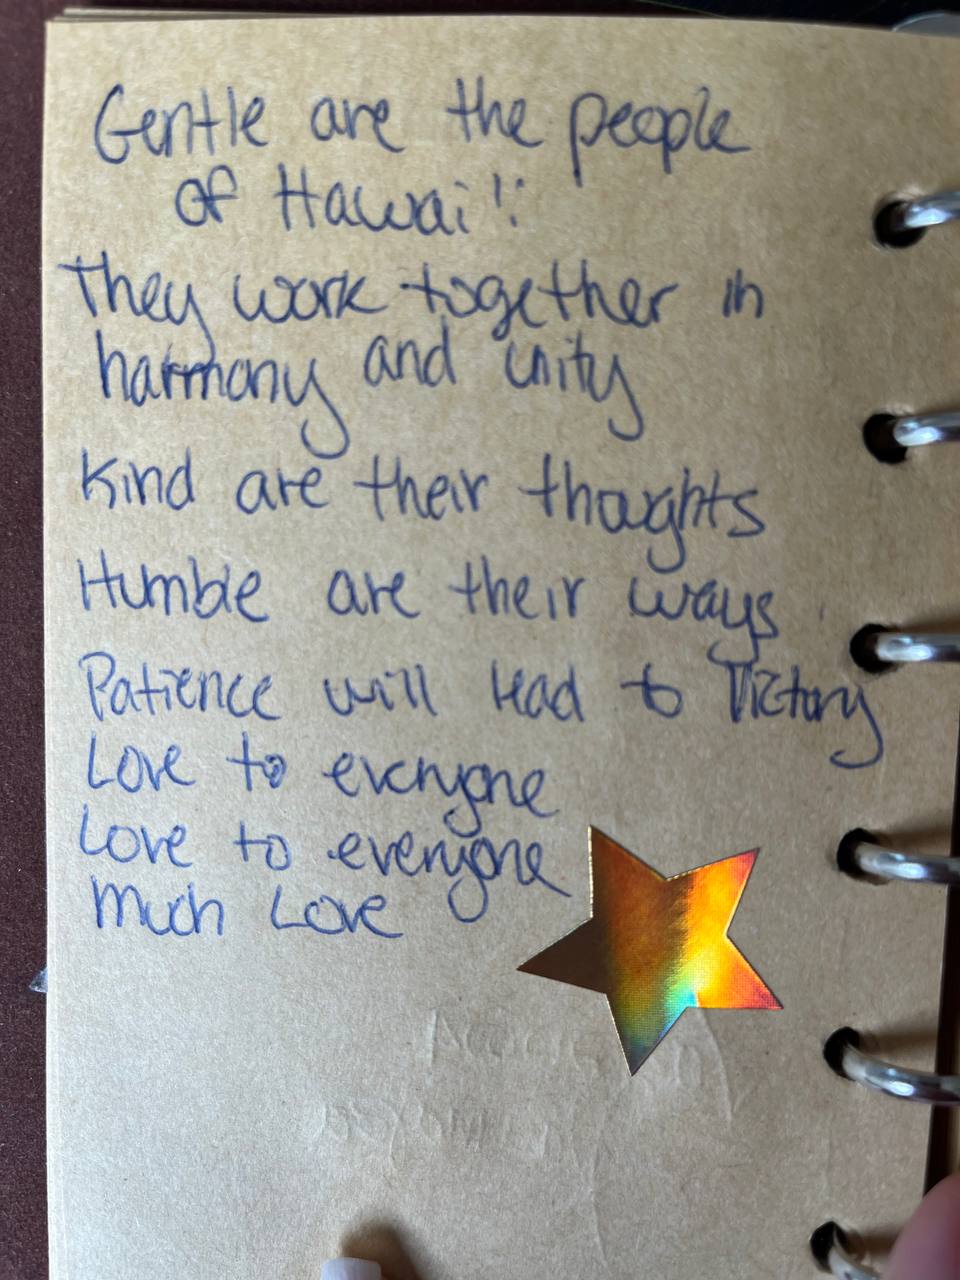 Gentle are the people
of Hawai'i:
They work together in
harmony and unity
Kind are their thoughts
Humble are their ways
Patience will lead to Victory
Love to everyone
Love to everyone
Much Love